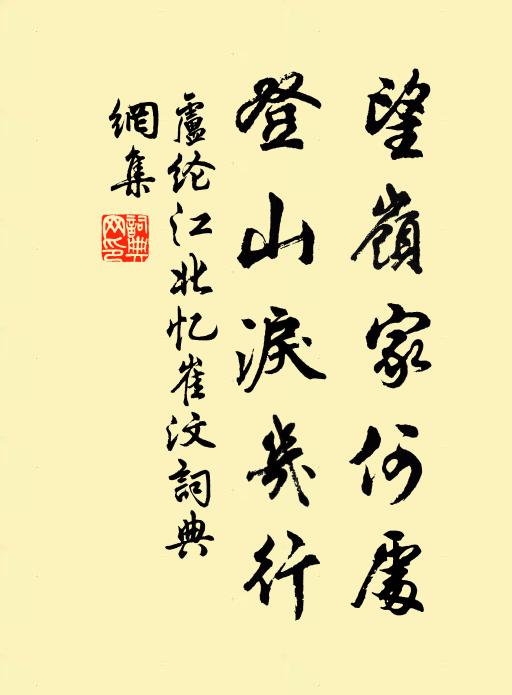 望嶺家何處
登山淚幾行
盧纶江北忆崔汶詞典
網集
詞典
网印